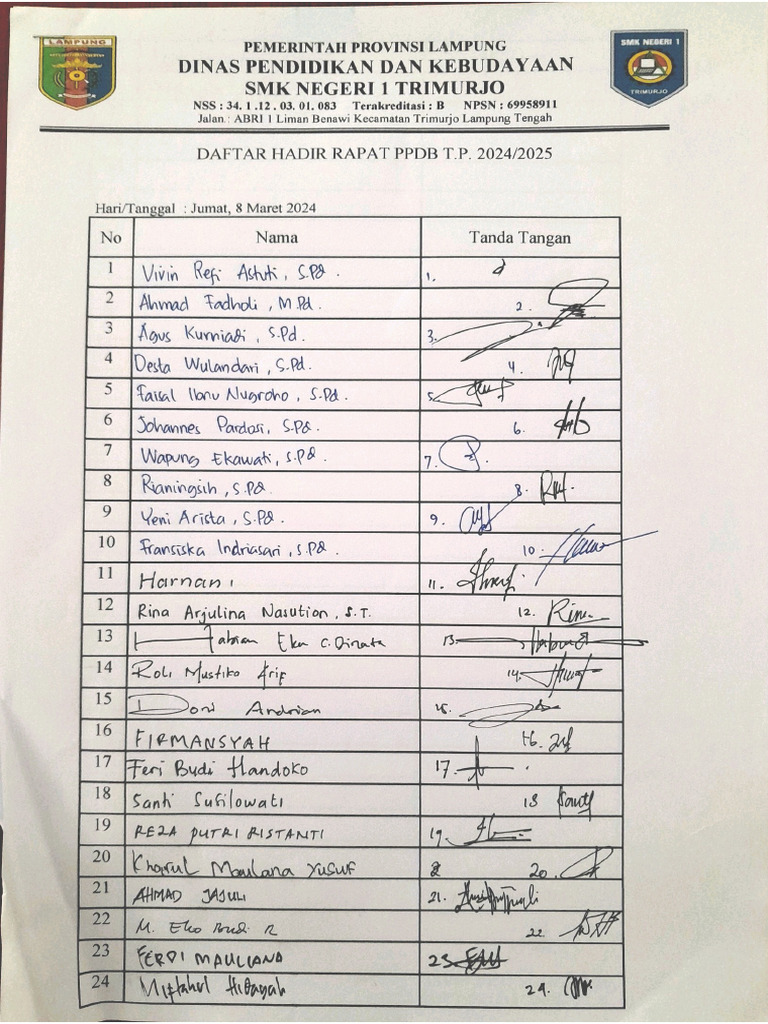 LAMPUNG
SMK NEGERI 1
TRIMURJO
PEMERINTAH PROVINSI LAMPUNG
DINAS PENDIDIKAN DAN KEBUDAYAAN
SMK NEGERI 1 TRIMURJO
NSS : 34. 1 .12 . 03. 01. 083 Terakreditasi : B NPSN : 69958911
Jalan.: ABRI 1 Liman Benawi Kecamatan Trimurjo Lampung Tengah
DAFTAR HADIR RAPAT PPDB T.P. 2024/2025
Hari/Tanggal : Jumat, 8 Maret 2024
No Nama Tanda Tangan
1 Vivin Refi Astuti, S.Pd. 1.
2 Ahmad Fadholi, M.Pd. 2.
3 Agus Kurniadi, S.Pd. 3.
4 Desta Wulandari, S.Pd. 4.
5 Faisal Ibnu Nugroho, S.Pd. 5.
6 Johannes Pardosi, S.Pd. 6.
7 Wapung Ekawati, S.Pd 7.
8 Rianingsih, S.Pd. 8.
9 Yeni Arista, S.Pd. 9.
10 Fransiska Indriasari, S.Pd. 10.
11 Harnani 11.
12 Rina Arjulina Nasution, S.T. 12.
13 Fabian Eka C. Dinata 13.
14 Roli Mustiko Arif 14.
15 Doni Andrian 15.
16 FIRMANSYAH 16.
17 Feri Budi Handoko 17.
18 Santi Susilowati 18
19 REZA PUTRI RISTANTI 19.
20 Khoirul Maulana Yusuf 20.
21 AHMAD JAJULI 21.
22 M. Eko Budi R 22
23 FERDI MAULIANA 23
24 Miftahul Hidayah 24.